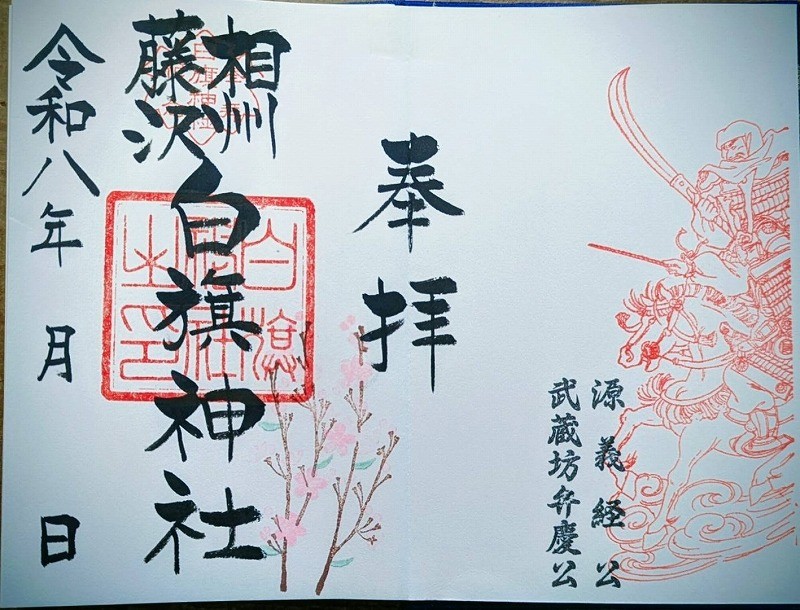 源義経公
武蔵坊弁慶公
奉拝
相州
藤沢
白旗神社
令和八年 月 日